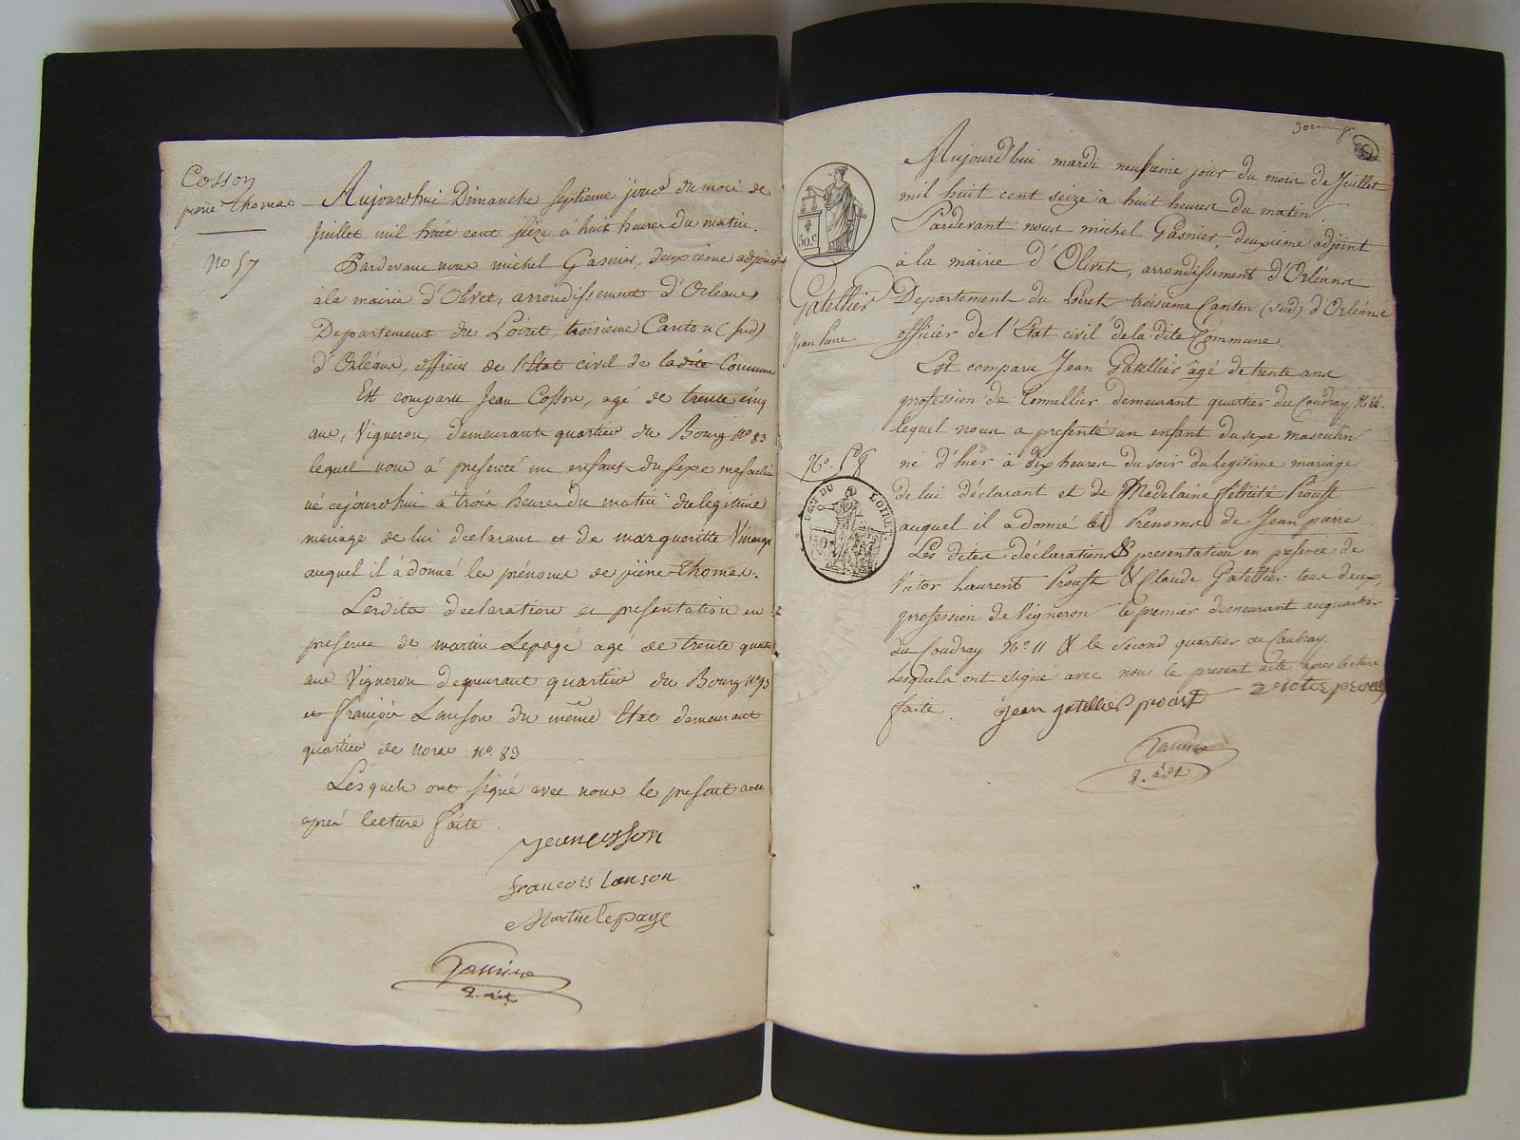 Cosson
pierre thomas
No 57
Aujourd'hui Dimanche septieme jour du mois de
Juillet mil huit cent seize à huit heures du matin.
Pardevant nous michel Gasnier, deuxieme adjoint
à la mairie d'Olivet, arrondissement d'Orleans
Departement du Loiret, troisieme Canton (sud)
d'Orléans, officier de l'Etat civil de ladite Commune
Est comparu Jean Cosson, agé de trente cinq
ans, Vigneron, demeurant quartier du Bourg No 83
lequel nous à presenté un enfant du sexe masculin
né cejourd'hui à trois heures du matin du legitime
mariage de lui declarant et de margueritte
auquel il à donné les prénoms de pierre Thomas.
Lesdites declaration et presentation en
presence de martin Lepage agé de trente quatre
ans Vigneron demeurant quartier du Bourg No 93
et François Lanson du même Etat demeurant
quartier de No. 83
Lesquels ont signé avec nous le present acte
après lecture faite
jean cosson
francois Lanson
Martin lepage
Gasnier
2. adt
30 c
Aujourd'hui mardi neufieme jour du mois de Juillet
mil huit cent seize à huit heures du matin
Pardevant nous michel Gasnier, deuxieme adjoint
à la mairie d'Olivet, arrondissement d'Orléans
Departement du Loiret troisieme Canton (sud) d'Orléans
officier de l'Etat civil de la dite Commune
50 c
Gatellier
Jean Pierre
Est comparu Jean Gatellier agé de trente ans
profession de Tonnellier demeurant quartier du Coudray No
lequel nous a presenté un enfant du sexe masculin
né d'hier à dix heures du soir du legitime mariage
de lui déclarant et de Medelaine felicité Proust
auquel il a donné les Prenoms de Jean pierre
No. 58
DEP. DU LOIRET
Les dites déclaration & presentation en presence de
Victor Laurent Proust & Claude Gatellier tous deux
profession de Vigneron le premier demeurant au quartier
du Coudray No. 11 & le second quartier de Caubray
Lesquels ont signé avec nous le present acte après lecture
faite. jean gatellier proust
Gasnier
2. adt